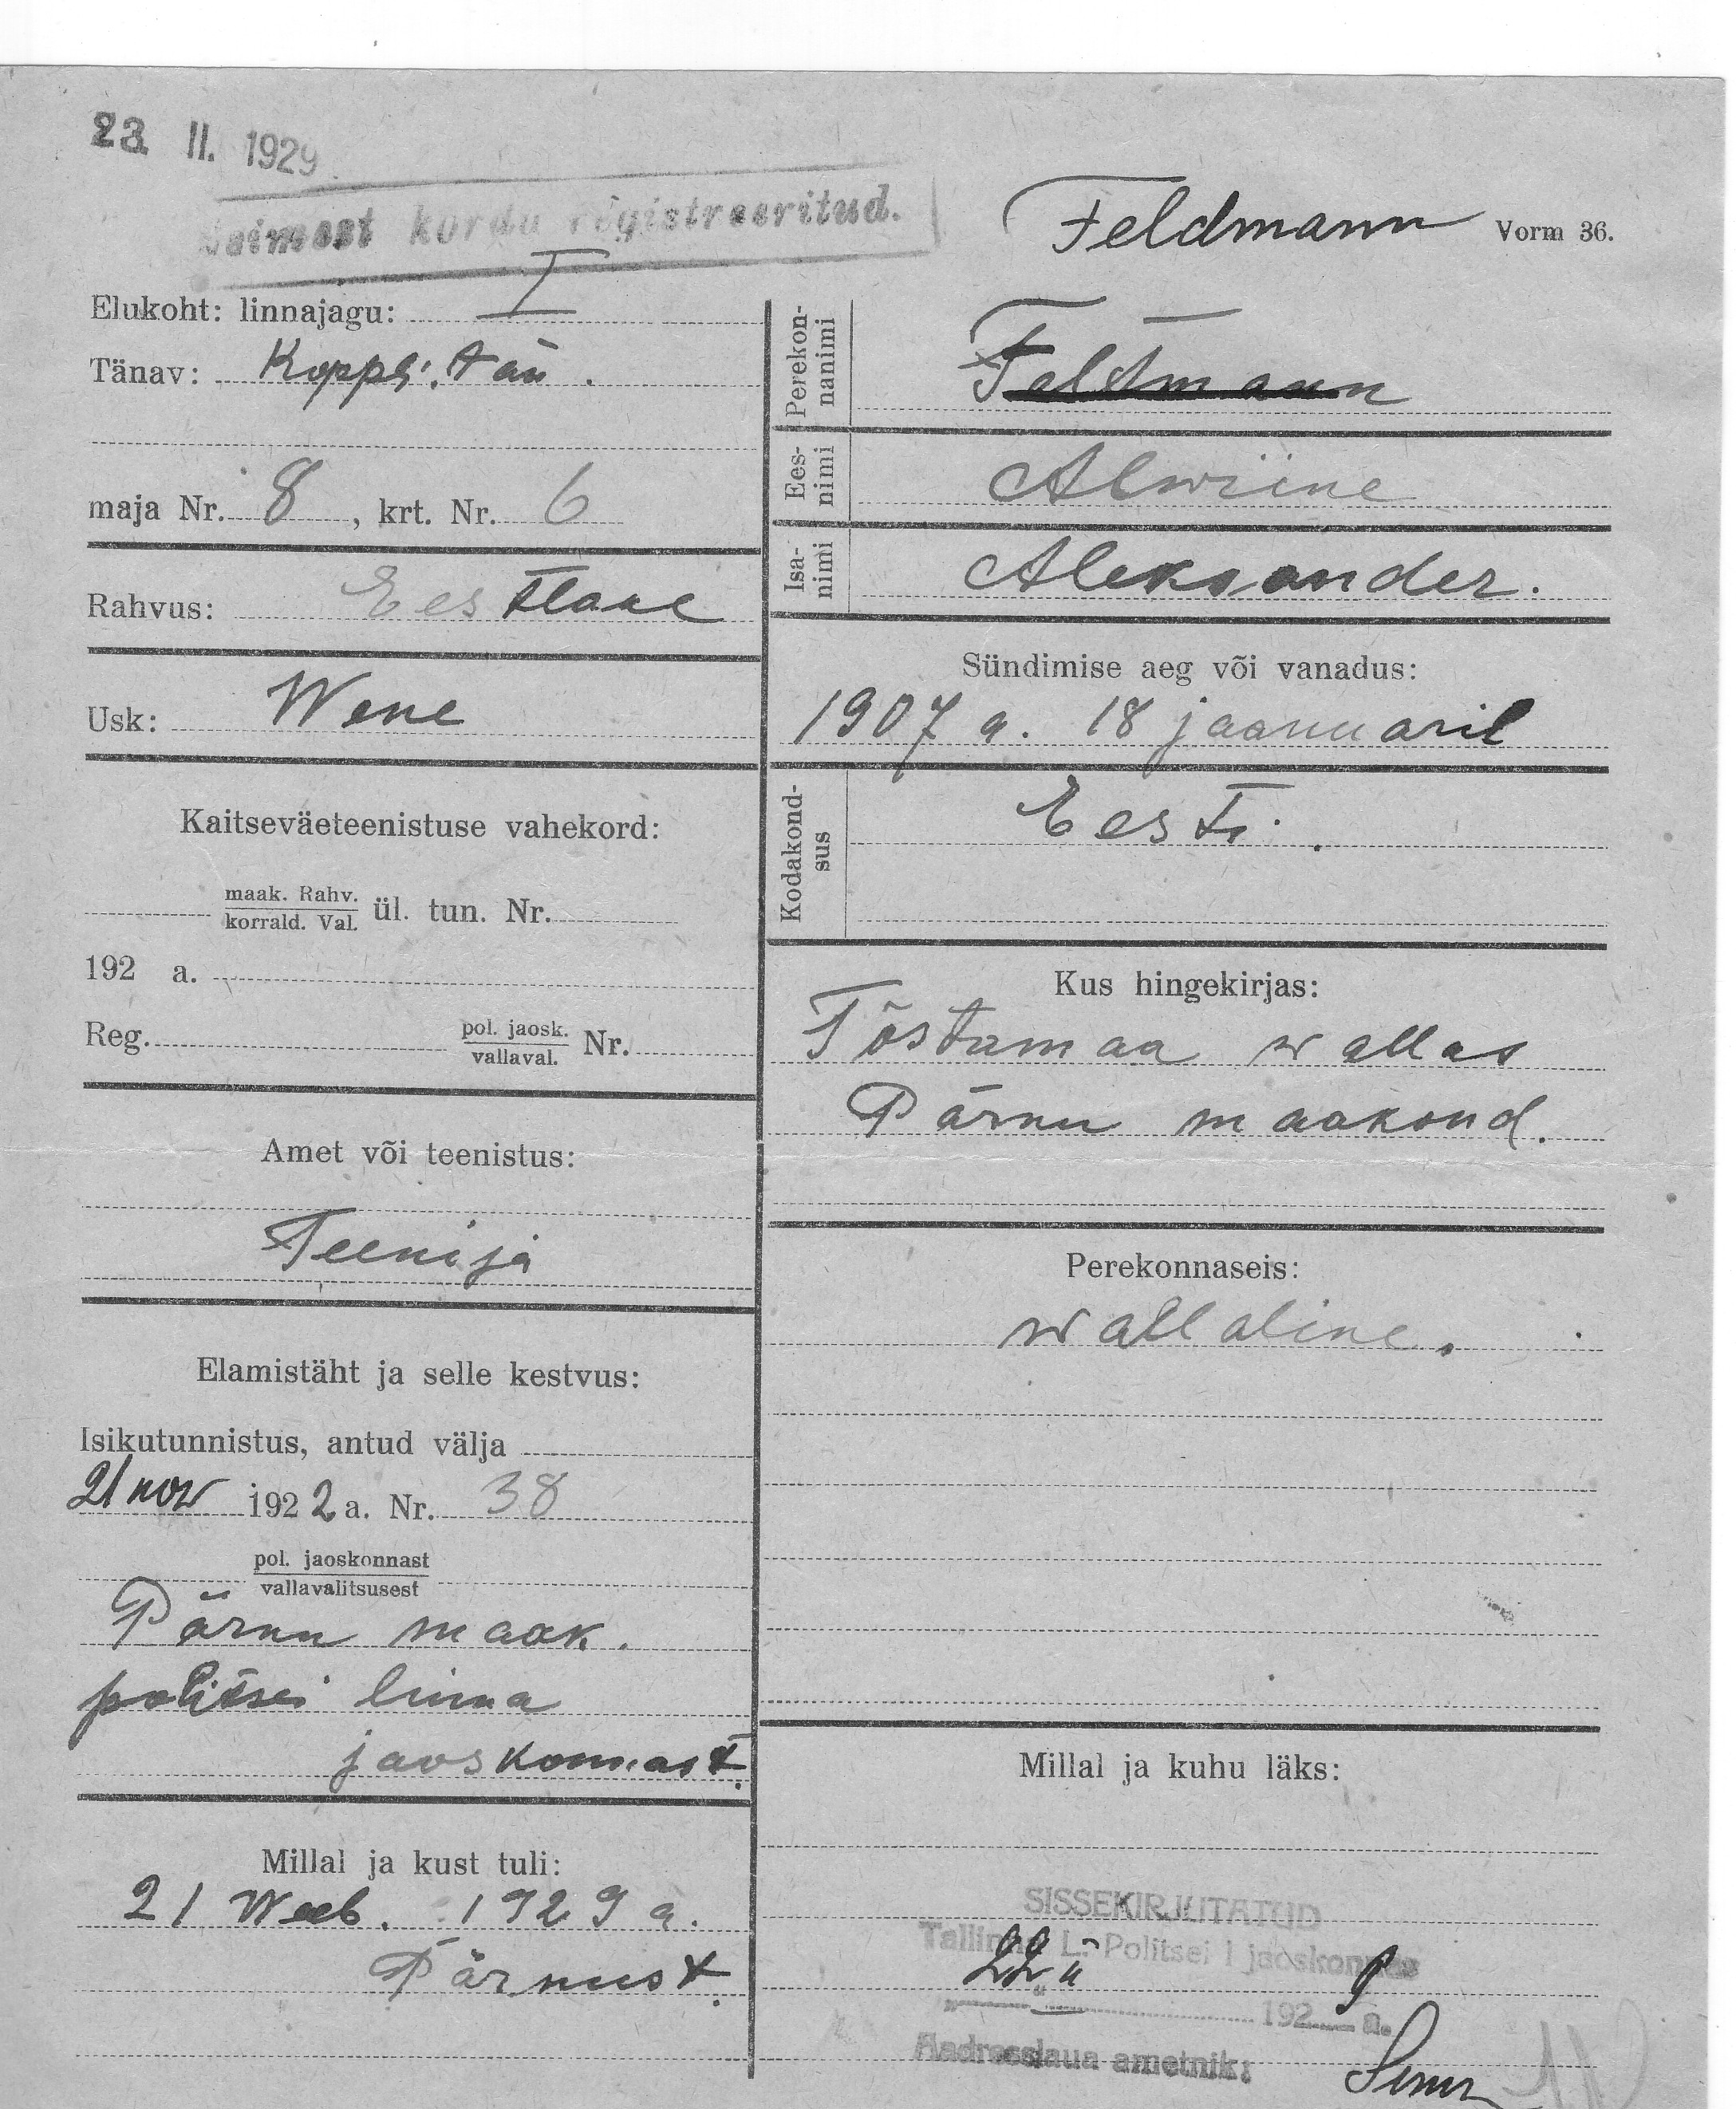 23. II. 1929.
Esimest korda registreeritud.
Feldmann Vorm 36.
Elukoht: linnajagu: I
Tänav: Kopli tän.
maja Nr. 8, krt. Nr. 6
Rahvus: Eestlane
Usk: Wene
Kaitseväeteenistuse vahekord:
maak. Rahv.
korrald. Val. ül. tun. Nr.
192 a.
Reg. pol. jaosk.
vallaval. Nr.
Amet või teenistus:
Teenija
Elamistäht ja selle kestvus:
Isikutunnistus, antud välja
21 now 1922 a. Nr. 38
pol. jaoskonnast
vallavalitsusest
Pärnu maak.
politsei linna
jaoskonnast.
Millal ja kust tuli:
21 Weeb. 1929 a.
Pärnust.
Perekon-
nanimi Feltmann
Ees-
nimi Alwiine
Isa-
nimi Aleksander.
Sündimise aeg või vanadus:
1907 a. 18 jaanuaril
Kodakond-
sus Eesti.
Kus hingekirjas:
Tõstamaa wallas
Pärnu maakond.
Perekonnaseis:
wallaline.
Millal ja kuhu läks:
SISSEKIRJUTATUD
Tallinna L. Politsei I jaoskonnas
22 II
192 9 a.
Aadresslaua ametnik: